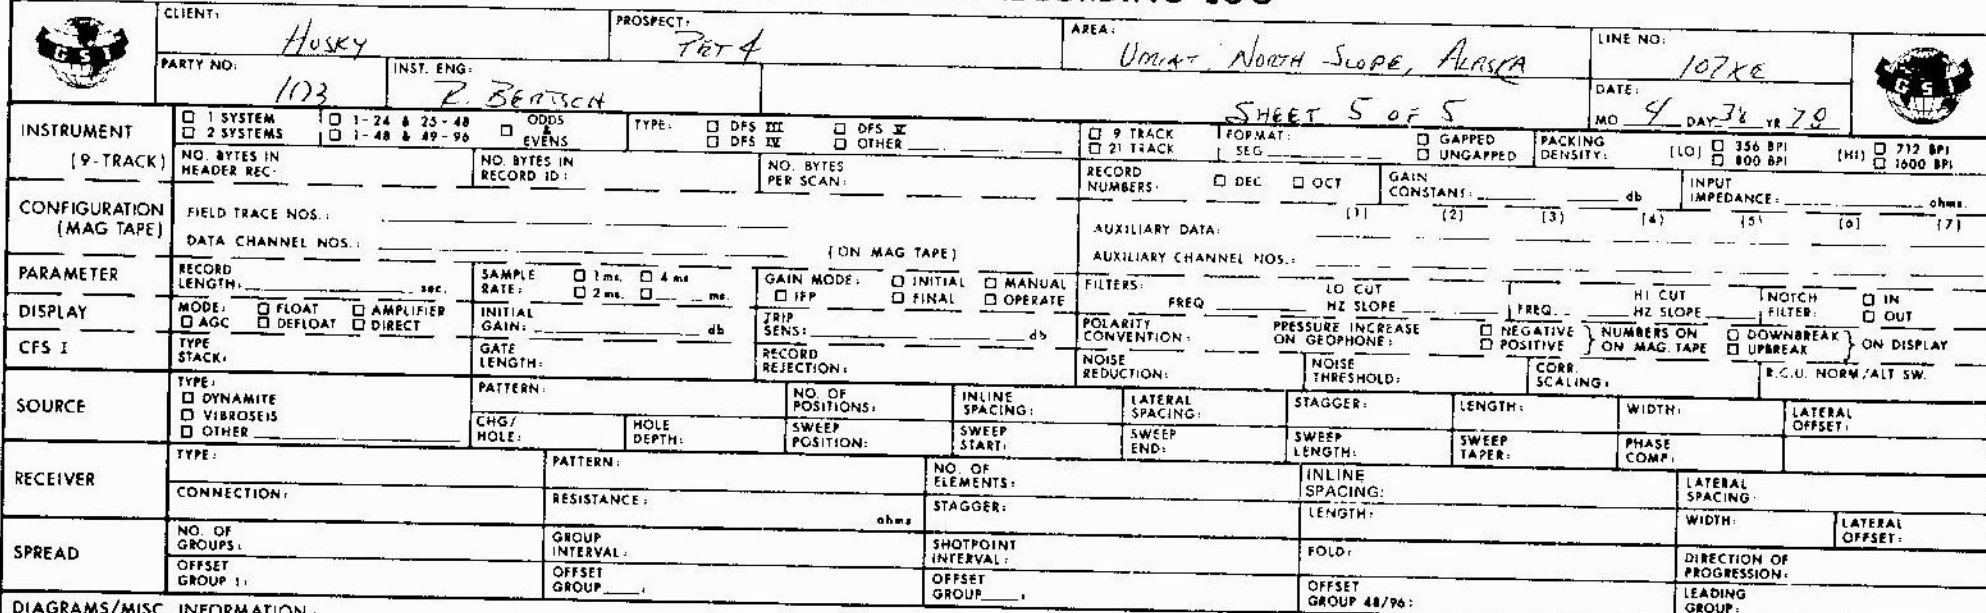 RECORDING LOG
GSI
CLIENT: Husky
PROSPECT: PET 4
AREA: UMIAT, NORTH SLOPE, ALASKA
LINE NO: 107XE
GSI
PARTY NO: 1173
INST. ENG: R. BERTSCH
SHEET 5 OF 5
DATE: MO 4 DAY YR 78
INSTRUMENT (9-TRACK)
□ 1 SYSTEM □ 1-24 & 25-48 □ ODDS & EVENS
□ 2 SYSTEMS □ 1-48 & 49-96
TYPE: □ DFS III □ DFS V
□ DFS IV □ OTHER
□ 9 TRACK □ 21 TRACK
FORMAT: SEG
□ GAPPED □ UNGAPPED
PACKING DENSITY: [LO] □ 356 BPI □ 800 BPI [HI] □ 712 BPI □ 1600 BPI
NO. BYTES IN HEADER REC:
NO. BYTES IN RECORD ID:
NO. BYTES PER SCAN:
RECORD NUMBERS: □ DEC □ OCT
GAIN CONSTANT: db
INPUT IMPEDANCE: ohms.
CONFIGURATION (MAG TAPE)
FIELD TRACE NOS.:
DATA CHANNEL NOS.: (ON MAG TAPE)
(1) (2) (3) (4) (5) (6) (7)
AUXILIARY DATA:
AUXILIARY CHANNEL NOS.:
PARAMETER
RECORD LENGTH: sec.
SAMPLE RATE: □ 1 ms. □ 4 ms □ 2 ms. □ ms.
GAIN MODE: □ INITIAL □ MANUAL □ IFP □ FINAL □ OPERATE
FILTERS: FREQ LO CUT HZ SLOPE FREQ. HI CUT HZ SLOPE
NOTCH FILTER: □ IN □ OUT
DISPLAY
MODE: □ FLOAT □ AMPLIFIER
□ AGC □ DEFLOAT □ DIRECT
INITIAL GAIN: db
TRIP SENS: db
POLARITY CONVENTION: PRESSURE INCREASE ON GEOPHONE: □ NEGATIVE □ POSITIVE } NUMBERS ON ON MAG. TAPE □ DOWNBREAK □ UPBREAK } ON DISPLAY
CFS I
TYPE STACK:
GATE LENGTH:
RECORD REJECTION:
NOISE REDUCTION:
NOISE THRESHOLD:
CORR. SCALING:
R.C.U. NORM/ALT SW.
SOURCE
TYPE:
□ DYNAMITE
□ VIBROSEIS
□ OTHER
PATTERN:
NO. OF POSITIONS:
INLINE SPACING:
LATERAL SPACING:
STAGGER:
LENGTH:
WIDTH:
LATERAL OFFSET:
CHG/HOLE:
HOLE DEPTH:
SWEEP POSITION:
SWEEP START:
SWEEP END:
SWEEP LENGTH:
SWEEP TAPER:
PHASE COMP:
RECEIVER
TYPE:
PATTERN:
NO. OF ELEMENTS:
INLINE SPACING:
LATERAL SPACING:
CONNECTION:
RESISTANCE: ohms
STAGGER:
LENGTH:
WIDTH:
LATERAL OFFSET:
SPREAD
NO. OF GROUPS:
GROUP INTERVAL:
SHOTPOINT INTERVAL:
FOLD:
DIRECTION OF PROGRESSION:
OFFSET GROUP 1:
OFFSET GROUP :
OFFSET GROUP :
OFFSET GROUP 48/96:
LEADING GROUP:
DIAGRAMS/MISC. INFORMATION: